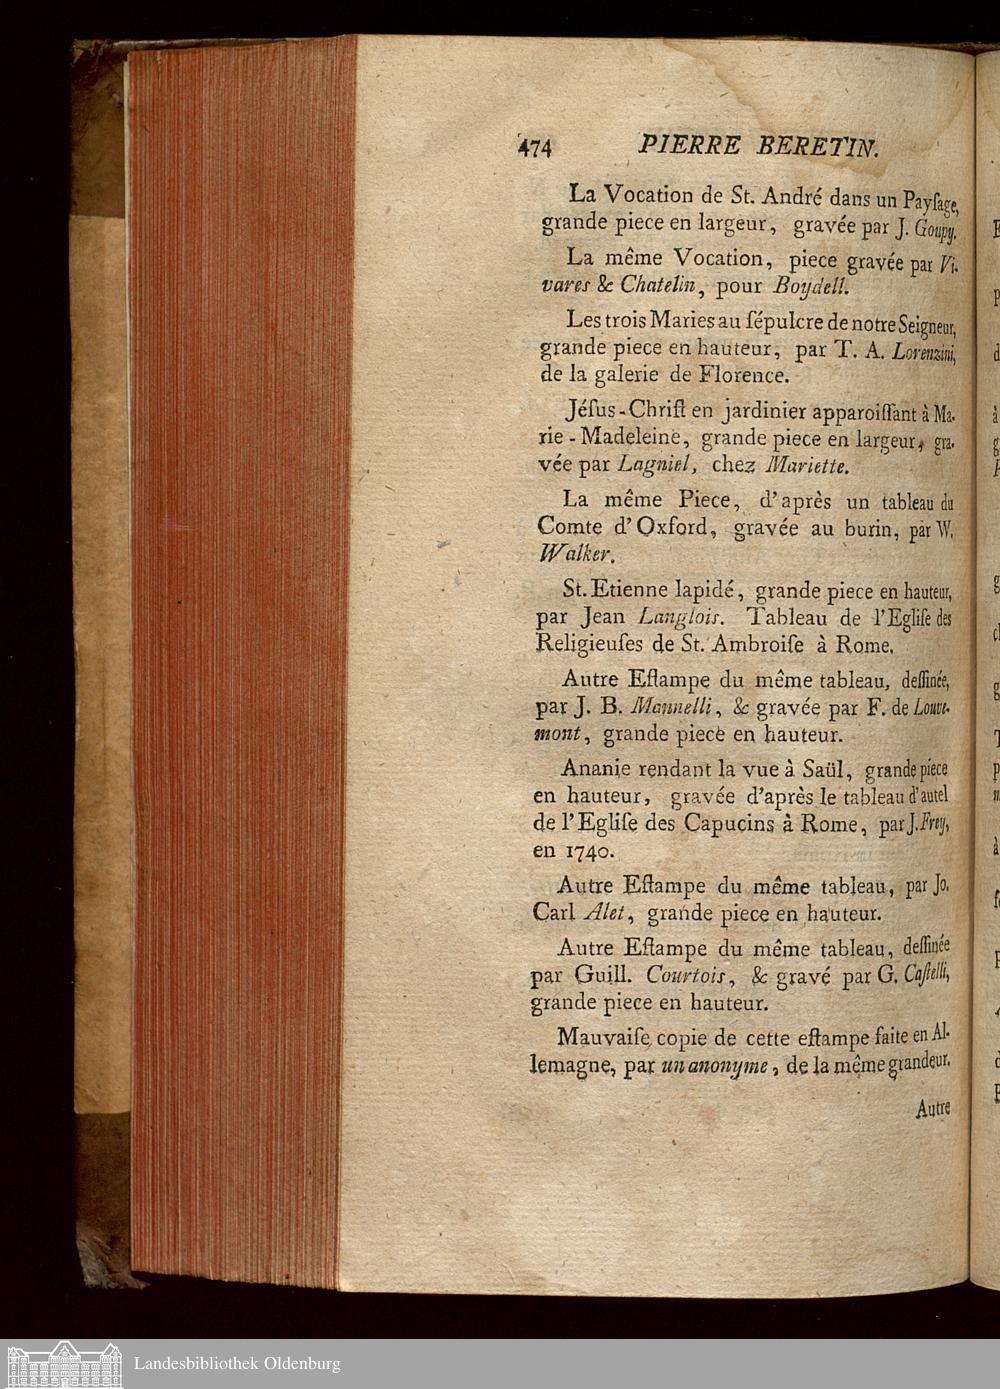 474 PIERRE BERETIN.
La Vocation de St. André dans un Payſage,
grande piece en largeur, gravée par J. Goupy.
La même Vocation, piece gravée par Vi-
vares & Chatelin, pour Boydell.
Les trois Maries au ſépulcre de notre Seigneur,
grande piece en hauteur, par T. A. Lorenzini,
de la galerie de Florence.
Jéſus-Chriſt en jardinier apparoiſſant à Ma-
rie-Madeleine, grande piece en largeur, gra-
vée par Lagniel, chez Mariette.
La même Piece, d'après un tableau du
Comte d'Oxford, gravée au burin, par W.
Walker.
St. Etienne lapidé, grande piece en hauteur,
par Jean Langlois. Tableau de l'Egliſe des
Religieuſes de St. Ambroiſe à Rome.
Autre Eſtampe du même tableau, deſſinée,
par J. B. Mannelli, & gravée par F. de Louve-
mont, grande piece en hauteur.
Ananie rendant la vue à Saül, grande piece
en hauteur, gravée d'après le tableau d'autel
de l'Egliſe des Capucins à Rome, par J. Frey,
en 1740.
Autre Eſtampe du même tableau, par Jo.
Carl Alet, grande piece en hauteur.
Autre Eſtampe du même tableau, deſſinée
par Guill. Courtois, & gravé par G. Caſtelli,
grande piece en hauteur.
Mauvaiſe copie de cette eſtampe faite en Al-
lemagne, par un anonyme, de la même grandeur.
Autre
Landesbibliothek Oldenburg